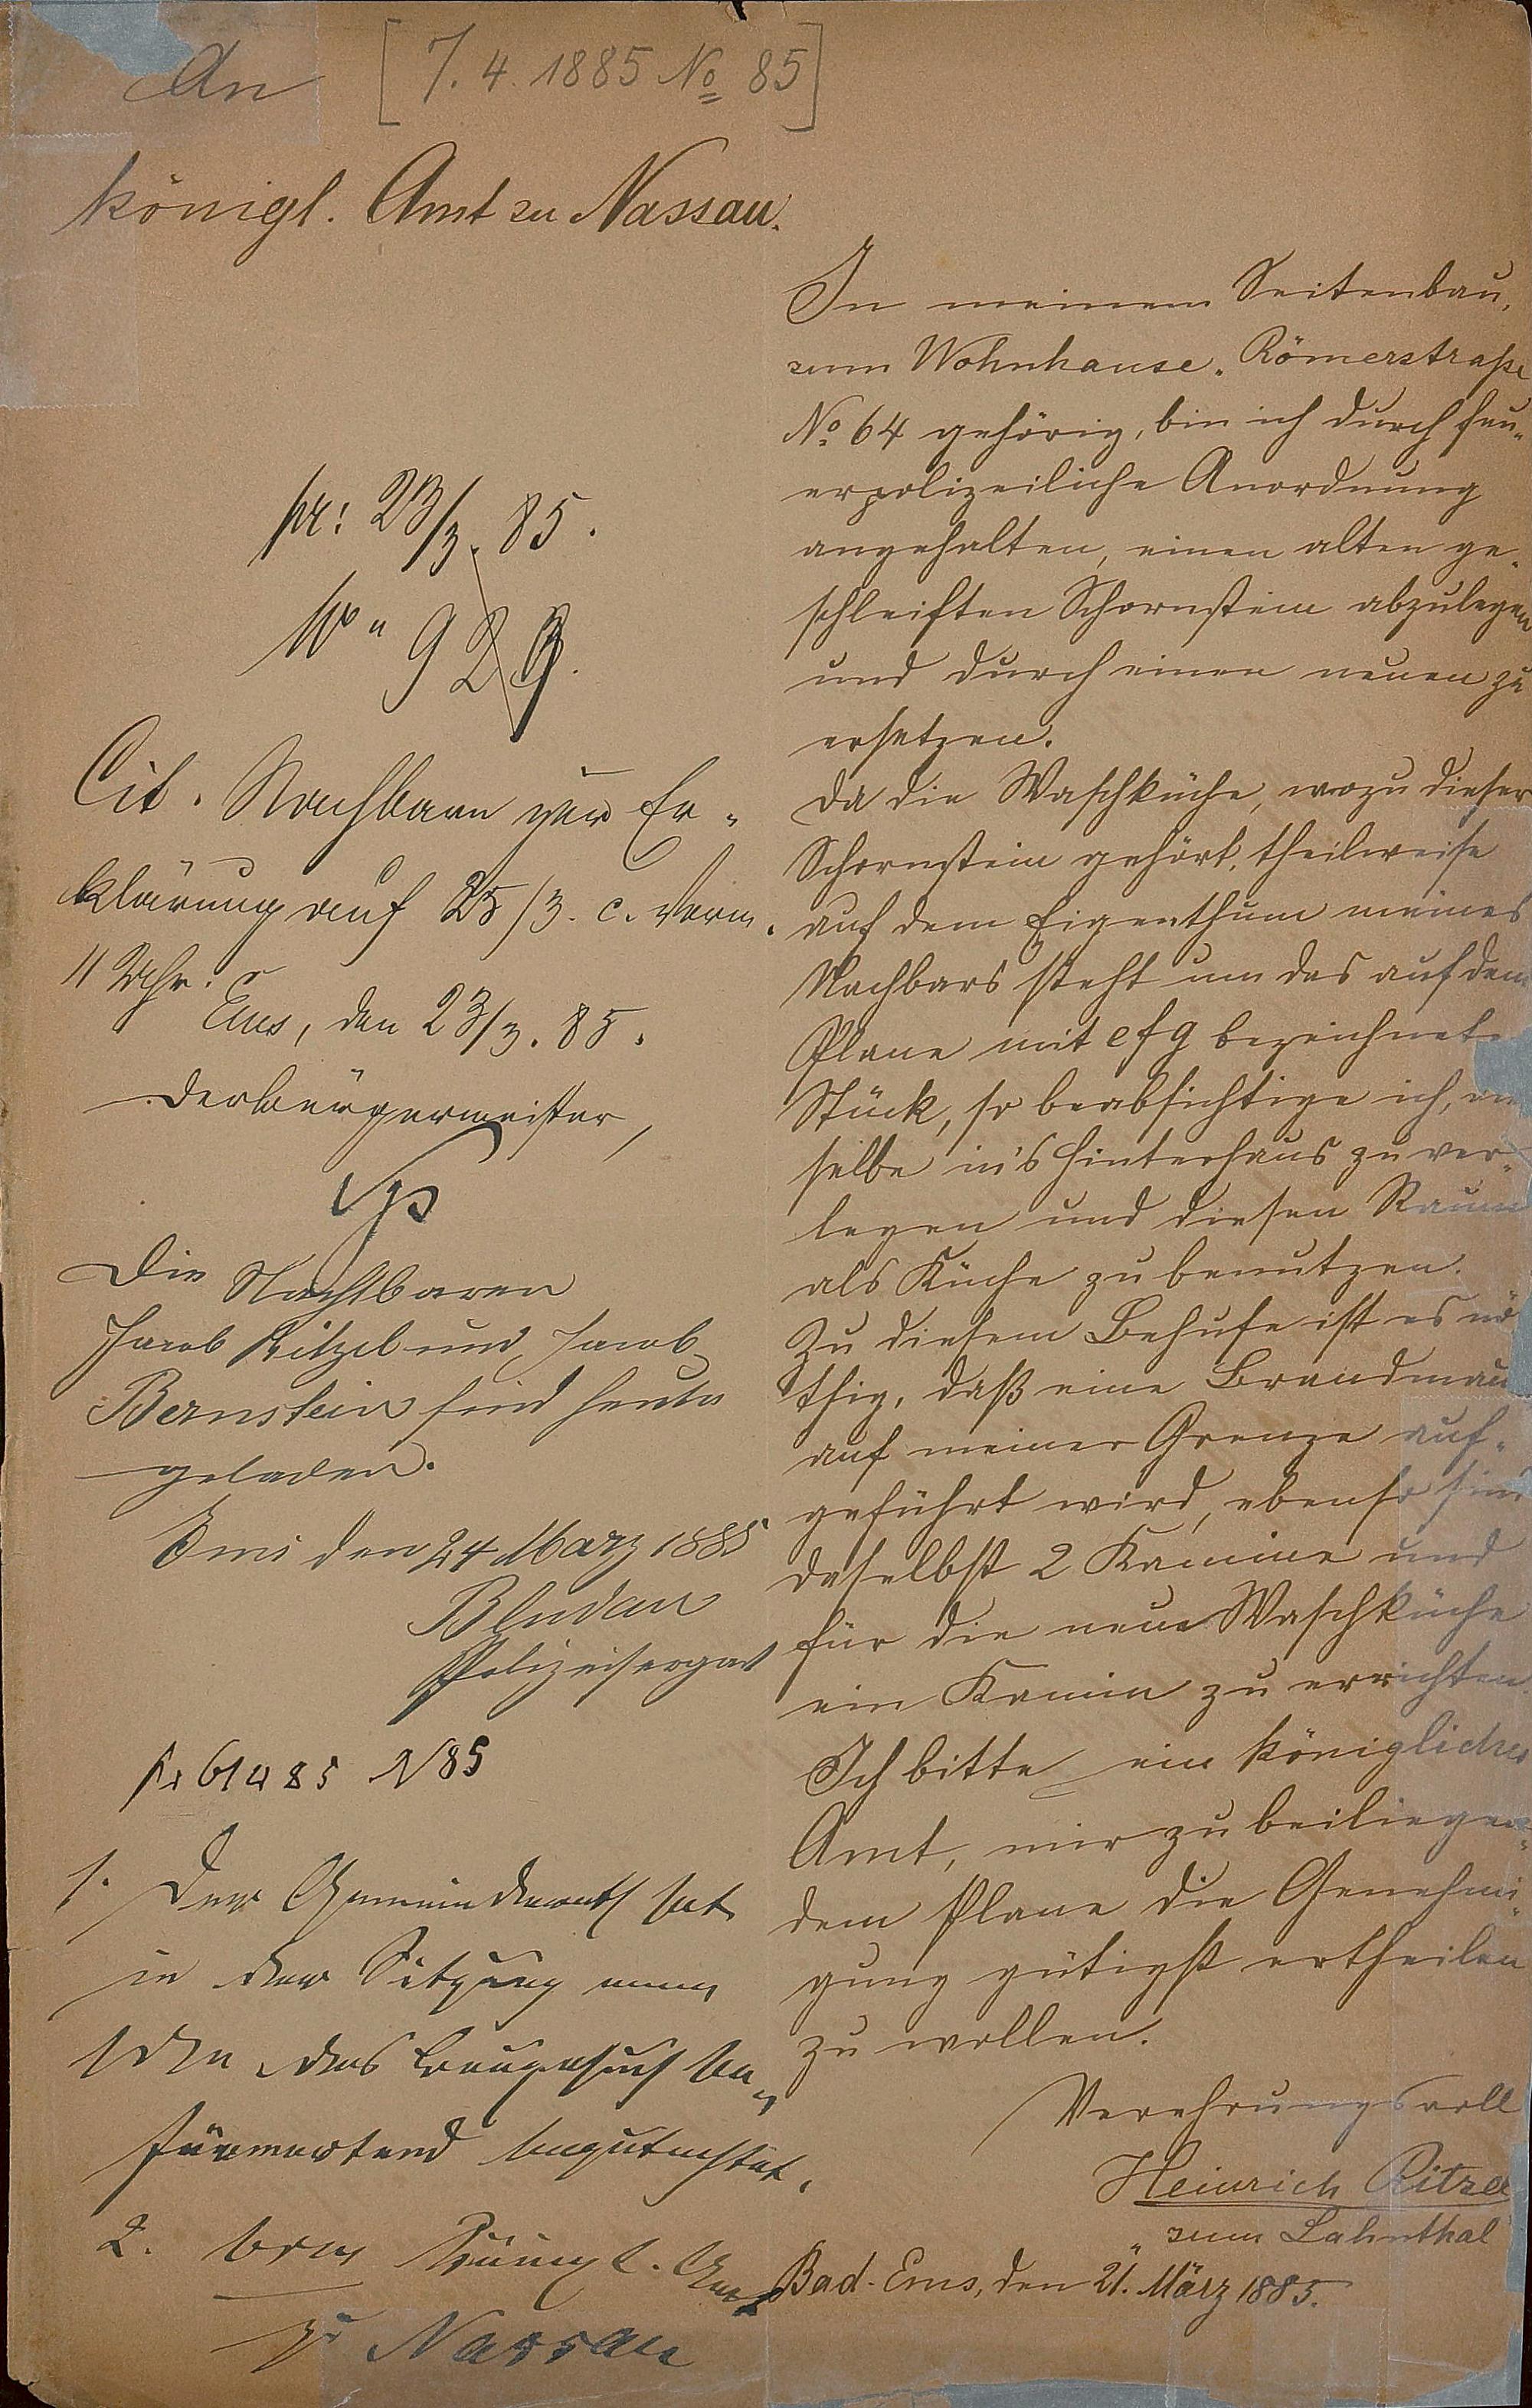 An [7.4.1885 No 85]
königl. Amt zu Nassau.
In meinem Seitenbau,
zum Wohnhause, Römerstraße
No 64 gehörig, bin ich durch feu-
erpolizeiliche Anordnung
angehalten, einen alten ge-
schleiften Schornstein abzulegen
und durch einen neuen zu
ersetzen.
Da die Waschküche, wozu dieser
Schornstein gehört, theilweise
auf dem Eigenthum meines
Nachbars steht um das auf dem
Plane mit efg bezeichnete
Stück, so beabsichtige ich,
selbe in's Hinterhaus zu ver-
legen und diesen Raum
als Küche zu benutzen.
Zu diesem Behufe ist es nö-
thig, daß eine Brandmau
auf meiner Grenze auf-
geführt wird, ebenso sind
daselbst 2 Kamine und
für die neue Waschküche
ein Kamin zu errichten.
Ich bitte ein königliches
Amt, mir zu beiliegen-
dem Plane die Genehmi-
gung gütigst ertheilen
zu wollen.
Verehrungsvoll
Heinrich Ritzel
"zum Lahnthal
Bad-Ems, den 21. März 1885.
pr: 23/3. 85.
No 923.
Cit. Nachbarn zur Er-
klärung auf 25/3. c. Vorm.
11 Uhr.
Ems, den 23/3. 85.
Der Bürgermeister,
Die Nachbaren
Jacob Ritzel und Jacob
Bernstein sind heute
geladen.
Ems den 24 März 1885
Bludau
Polizeisergant
pr 6/4 85 N 85
1. Der Gemeinderath hat
in der Sitzung vom
das Baugesuch be-
fürwortend begutachtet.
2. Königl. Amt
zu Nassau